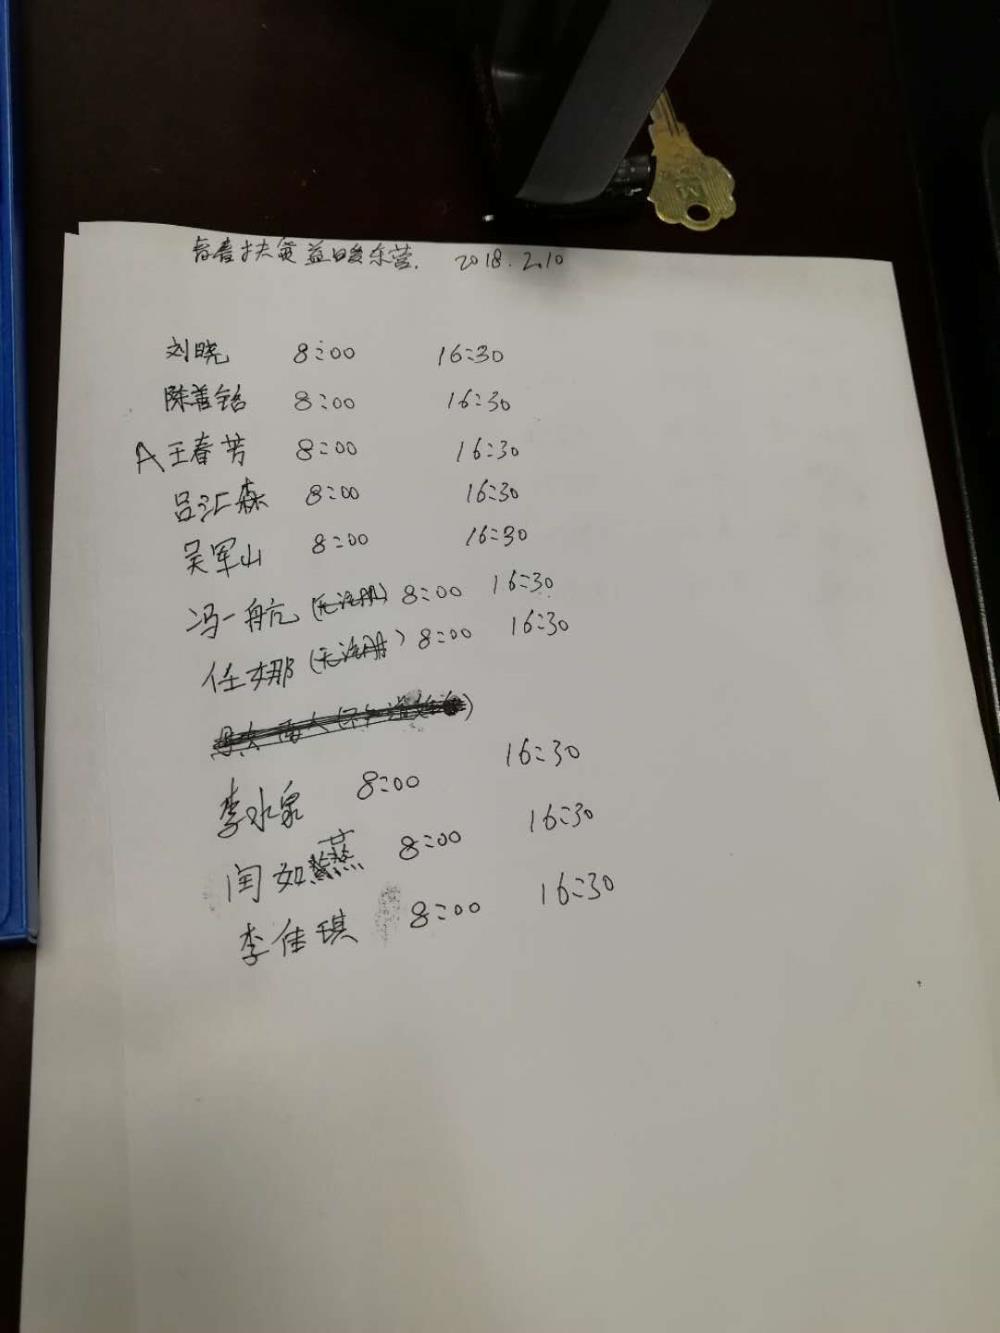 青春扶贫益暖东营. 2018.2.10
刘晓 8:00 16:30
陈善铭 8:00 16:30
A王春芳 8:00 16:30
吕汇森 8:00 16:30
吴军山 8:00 16:30
冯一航(无注册) 8:00 16:30
任娜(无注册) 8:00 16:30
李水泉 8:00 16:30
闫如燕 8:00 16:30
李佳琪 8:00 16:30